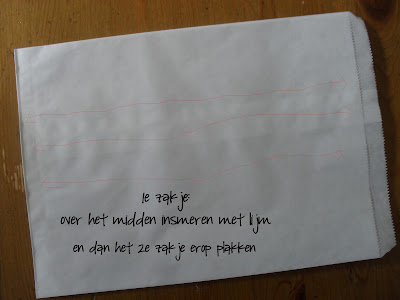 1e zakje:
over het midden insmeren met lijm
en dan het 2e zakje erop plakken